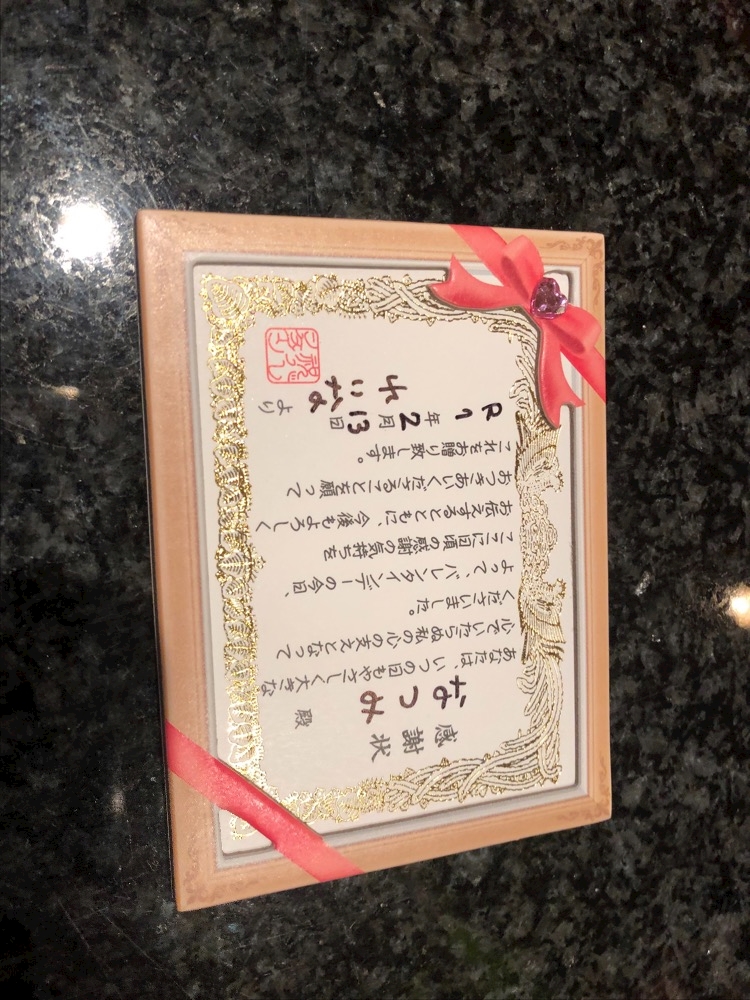 感謝状
なつめ 殿
あなたは、いつの日もやさしく大きな
心でいたらぬ私の心の支えとなって
くださいました。
よって、バレンタインデーの今日、
ここに日頃の感謝の気持ちを
お伝えするとともに、今後もよろしく
おつきあいくださることを願って
これをお贈り致します。
R7年2月13日
れいなより